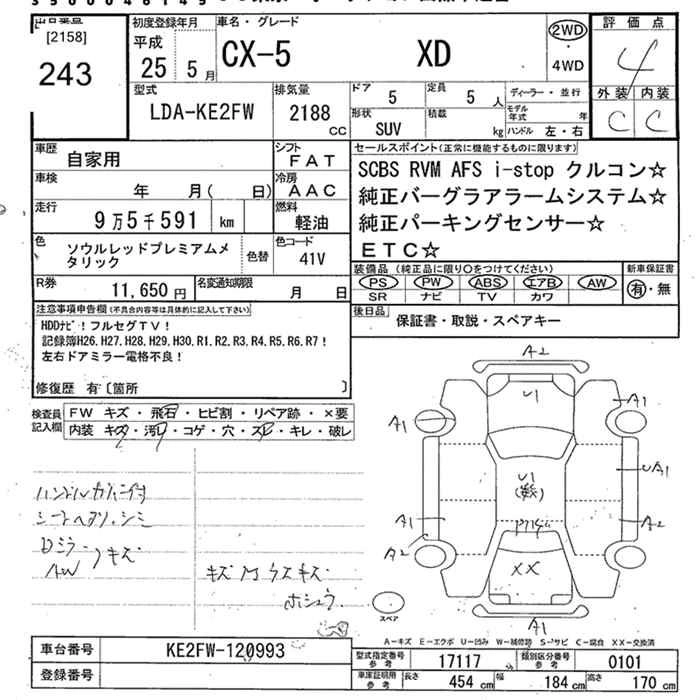 [2158]
243
初度登録年月
平成
25 5月
車名・グレード
CX-5 XD
2WD
・
4WD
評価点
4
外装 内装
C C
型式
LDA-KE2FW
排気量
2188
CC
ドア
5
定員
5人
形状
SUV
積載
kg
ディーラー・並行
モデル年式 年
ハンドル 左・右
車歴
自家用
シフト
FAT
車検
年 月( 日)
冷房
AAC
走行
9万5千591 km
燃料
軽油
色
ソウルレッドプレミアムメ
タリック
色替
色コード
41V
R券
11,650円
名変通知期限
月 日
セールスポイント(正常に機能するものに限ります)
SCBS RVM AFS i-stop クルコン☆
純正バーグラアラームシステム☆
純正パーキングセンサー☆
ETC☆
装備品 (純正品に限り○をつけてください)
PS PW ABS エアB AW
SR ナビ TV カワ
新車保証書
有・無
後日品
保証書・取説・スペアキー
注意事項申告欄(不具合内容等は具体的に記入して下さい)
HDDナビ!フルセグTV!
記録簿H26.H27.H28.H29.H30.R1.R2.R3.R4.R5.R6.R7!
左右ドアミラー電格不良!
修復歴 有〔箇所 〕
検査員
記入欄
FW キズ・飛石・ヒビ割・リペア跡・×要
内装 キズ・汚レ・コゲ・穴・スレ・キレ・破レ
シートヘタリ、シミ
AW キズ
キズ
A2
U1
A1
A1
U1
UA1
A1
A2
A2
XX
A1
スペア
A-キズ E-エクボ U-凹み W-補修跡 S-サビ C-腐食 XX-交換済
車台番号
KE2FW-120993
登録番号
型式指定番号
参考
17117
類別区分番号
参考
0101
車庫証明用
参考
長さ 454 cm 幅 184 cm 高さ 170 cm